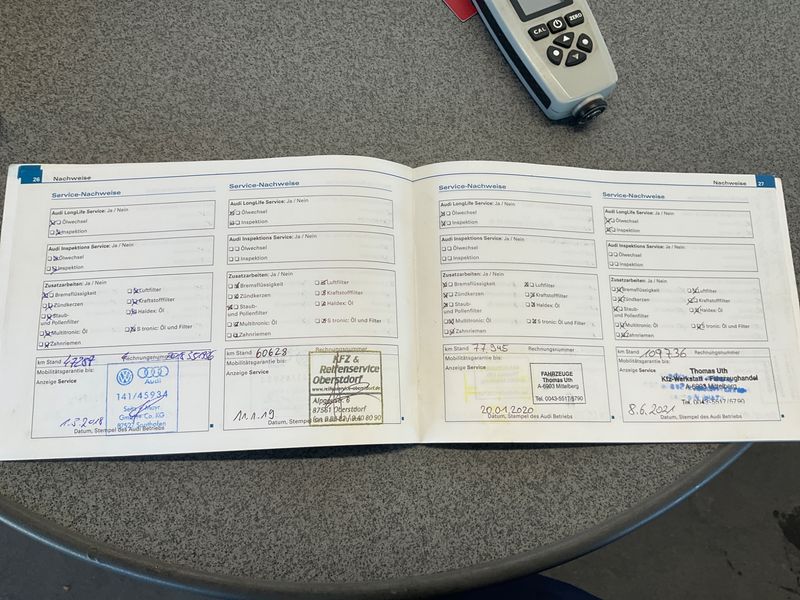 CAL
ZERO
26 Nachweise
Service-Nachweise
Audi LongLife Service: Ja / Nein
Ölwechsel
Inspektion
Audi Inspektions Service: Ja / Nein
Ölwechsel
Inspektion
Zusatzarbeiten: Ja / Nein
Bremsflüssigkeit
Luftfilter
Zündkerzen
Kraftstofffilter
Staub-
und Pollenfilter
Haldex: Öl
Multitronic: Öl
S tronic: Öl und Filter
Zahnriemen
km Stand
Rechnungsnummer
Mobilitätsgarantie bis:
Anzeige Service
Audi
141/45934
87527 Sonthofen
1.3.2018
Datum, Stempel des Audi Betriebs
Service-Nachweise
Audi LongLife Service: Ja / Nein
Ölwechsel
Inspektion
Audi Inspektions Service: Ja / Nein
Ölwechsel
Inspektion
Zusatzarbeiten: Ja / Nein
Bremsflüssigkeit
Luftfilter
Zündkerzen
Kraftstofffilter
Staub-
und Pollenfilter
Haldex: Öl
Multitronic: Öl
S tronic: Öl und Filter
Zahnriemen
km Stand 60628
Rechnungsnummer
Mobilitätsgarantie bis:
Anzeige Service
KFZ &
Reifenservice
Oberstdorf
Alpgaustr. 6
87561 Oberstdorf
11.1.19
Datum, Stempel des Audi Betriebs
Nachweise 27
Service-Nachweise
Audi LongLife Service: Ja / Nein
Ölwechsel
Inspektion
Audi Inspektions Service: Ja / Nein
Ölwechsel
Inspektion
Zusatzarbeiten: Ja / Nein
Bremsflüssigkeit
Luftfilter
Zündkerzen
Kraftstofffilter
Staub-
und Pollenfilter
Haldex: Öl
Multitronic: Öl
S tronic: Öl und Filter
Zahnriemen
km Stand 77945
Rechnungsnummer
Mobilitätsgarantie bis:
Anzeige Service
FAHRZEUGE
Thomas Uth
A-6993 Mittelberg
Tel. 0043-5517/5790
20.01.2020
Datum, Stempel des Audi Betriebs
Service-Nachweise
Audi LongLife Service: Ja / Nein
Ölwechsel
Inspektion
Audi Inspektions Service: Ja / Nein
Ölwechsel
Inspektion
Zusatzarbeiten: Ja / Nein
Bremsflüssigkeit
Luftfilter
Zündkerzen
Kraftstofffilter
Staub-
und Pollenfilter
Haldex: Öl
Multitronic: Öl
S tronic: Öl und Filter
Zahnriemen
km Stand 109736
Rechnungsnummer
Mobilitätsgarantie bis:
Anzeige Service
Thomas Uth
Kfz-Werkstatt - Fahrzeughandel
A-6993 Mittelberg
Tel. 0043-5517/5790
8.6.2021
Datum, Stempel des Audi Betriebs